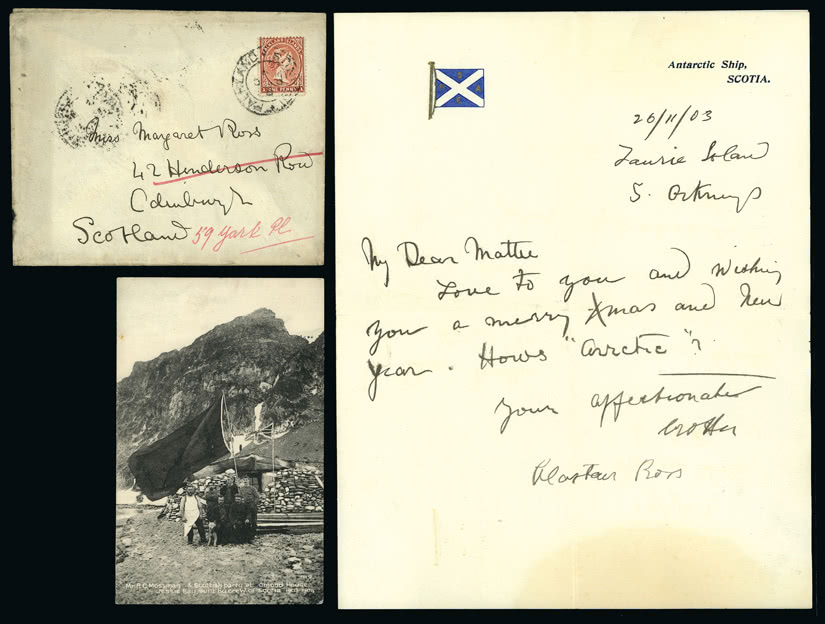 FALKLAND
ONE PENNY
Miss Margaret Ross
42 Henderson Row
Edinburgh
Scotland 59 York Pl
Antarctic Ship,
SCOTIA.
26/11/03
Laurie Island
S. Orkneys
My Dear Mattie
Love to you and wishing
you a merry Xmas and New
Year. Hows "Arctic"?
Your affectionate
brother
Alastair Ross
Mr. R.C. Mossman & Scottish party at Omond House,